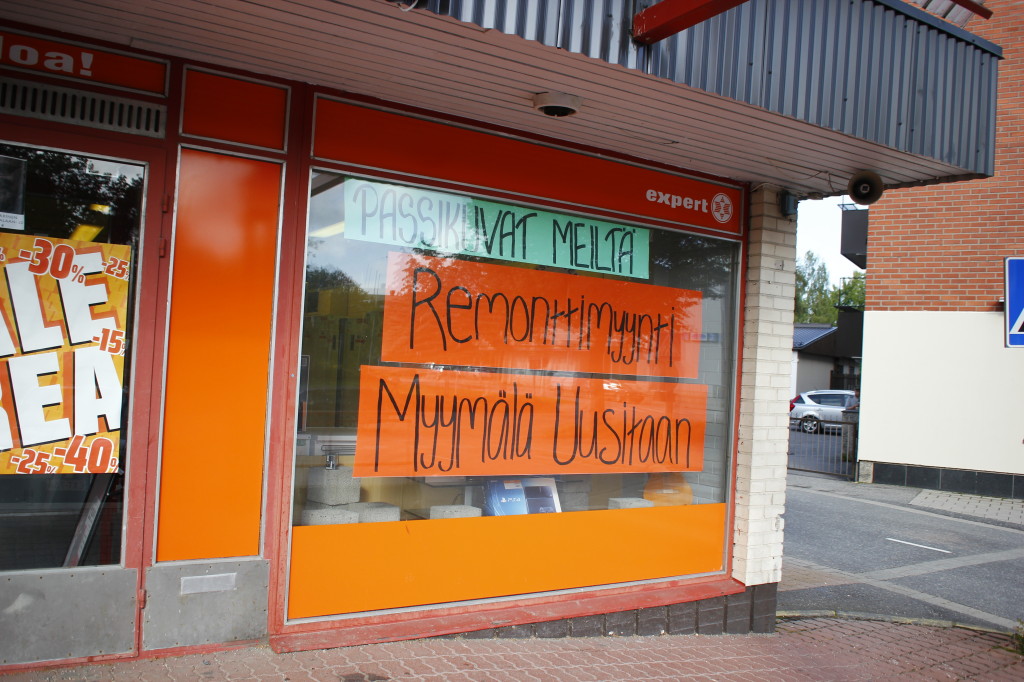 oa!
expert
PASSIKUVAT MEILTÄ
Remonttimyynti
Myymälä Uusitaan
-30%
-25
ALE
-15
REA
-25%
-40%
PS4